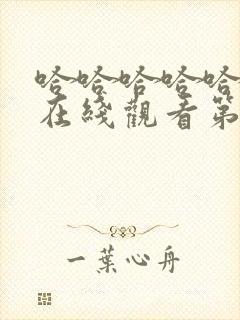 哈哈哈哈哈
在綫觀看第
一葉心舟